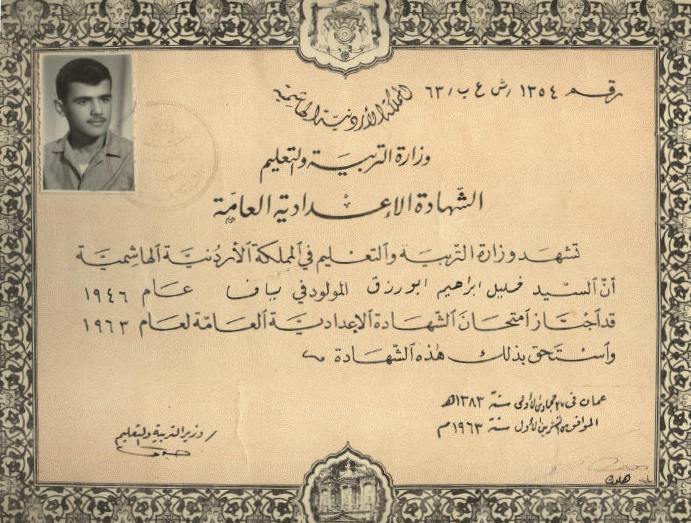 رقم ١٣٥٤ /ش ع ب/ ٦٣
المملكة الأردنية الهاشمية
وزارة التربية والتعليم
الشهادة الإعدادية العامة
تشهد وزارة التربية والتعليم في المملكة الأردنية الهاشمية
أن السيد خليل ابراهيم ابورزق المولود في يافا عام ١٩٤٦
قد اجتاز امتحان الشهادة الإعدادية العامة لعام ١٩٦٣
واستحق بذلك هذه الشهادة
عمان في ٢٧ جمادى الأولى سنة ١٣٨٣هـ
الموافق تشرين الأول سنة ١٩٦٣م
/ وزير التربية والتعليم